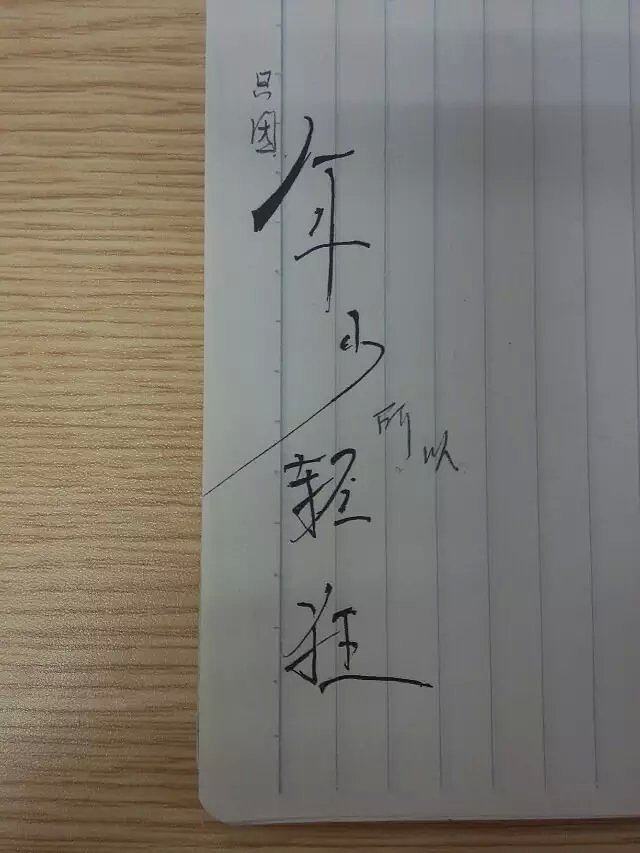 只因
年少
所以
轻狂